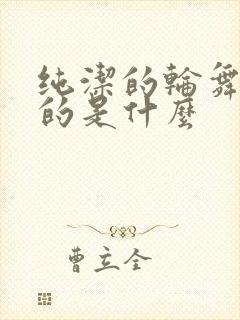 纯潔的輪舞
的是什麼
曹立全